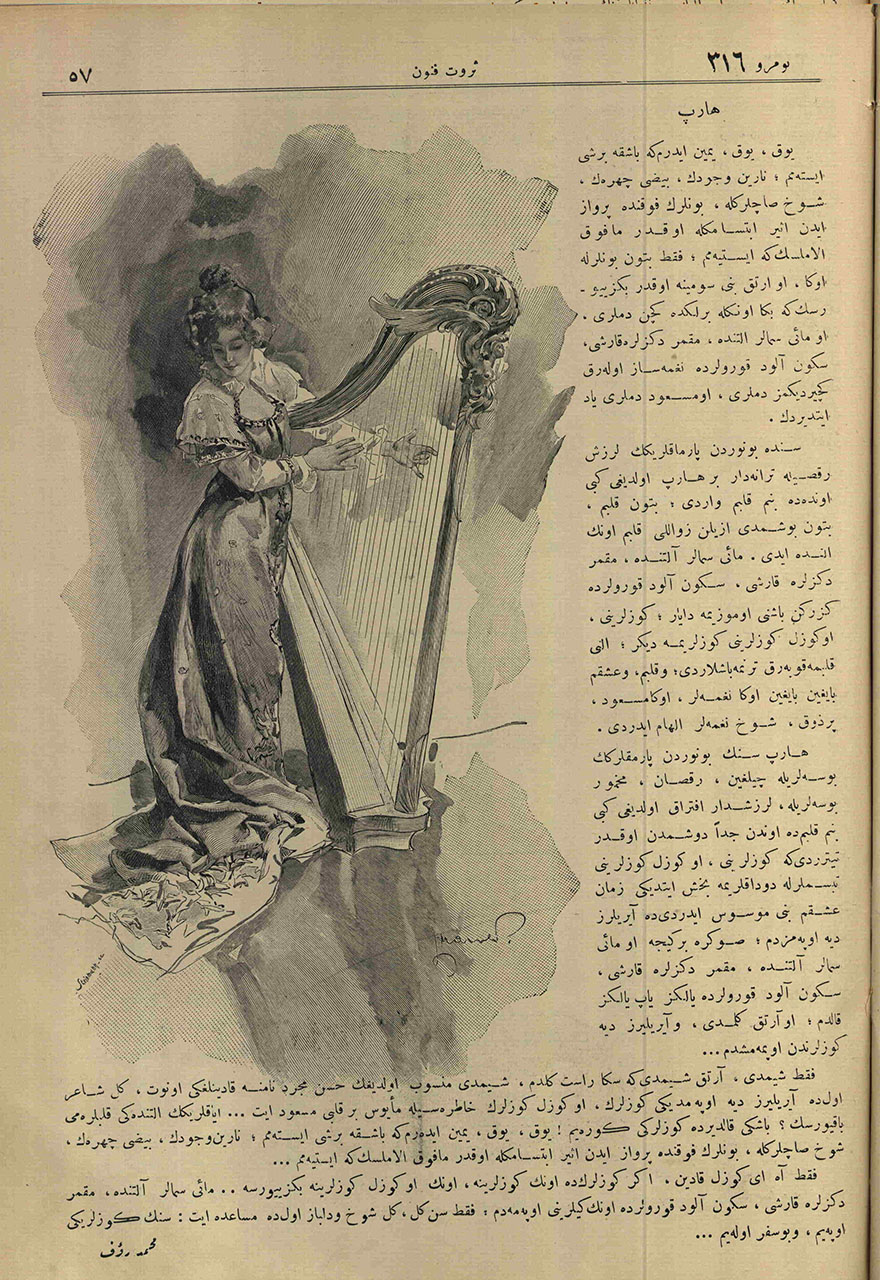 نومرو ٣١٦
ثروت فنون
٥٧
هارپ
یوق ، یوق ، یمین ایدرم‌که باشقه برشی
ایسته‌مم ؛ نارین وجودك ، بیضی چهره‌ك ،
شوخ صاچلركله ، بونلرك فوقنده پرواز
ایدن اثیر ابتسامكله اوقدر مافوق
الاملسك‌که ایستیه‌مم ؛ فقط بتون بونلرله
اوكا ، او ارتق بنی سومینه اوقدر بكزییو -
رسك‌که بكا اونكله برلكده كچن دملری ،
او مائی سمالر التنده ، مقمر دكزلره قارشی،
سكون آلود قورولرده نغمه‌ساز اوله‌رق
كچیردیكمز دملری ، اومسعود دملری یاد
ایتدیردك .
سنده بونوردن پارماقلریكك لرزش
رقصیله ترانه‌دار بر هارپ اولدیغی كبی
اونده‌ده بنم قلبم واردی ؛ بتون قلبم ،
بتون بوشمدی ازیلن زواللی قلبم اونك
النده ایدی . مائی سمالر آلتنده ، مقمر
دكزلره قارشی ، سكون آلود قورولرده
كزركن باشنی اوموزیمه دایار ؛ كوزلرینی ،
اوكوزل كوزلرینی كوزلریمه دیكر ؛ النی
قلبمه‌قویه‌رق ترنمه‌باشلاردی؛ وقلبم، وعشقم
بایغین بایغین اوكا نغمه‌لر ، اوكامسعود ،
پرذوق ، شوخ نغمه‌لر الهام ایدردی .
هارپ سنك بونوردن پارمقلركك
بوسه‌لریله چیلغین ، رقصان ، مخمور
بوسه‌لریله، لرزشدار افتراق اولدیغی كبی
بنم قلبم‌ده اوندن جداً دوشمدن اوقدر
تیترردی‌كه كوزلرینی ، او كوزل كوزلرینی
تبسملرله دوداقلریمه بخش ایتدیكی زمان
عشقم بنی موسوس ایدردی‌ده آیریلرز
دیه اوپه‌مزدم ؛ صوكره بركیجه او مائی
سمالر آلتنده ، مقمر دكزلره قارشی ،
سكون آلود قورولرده یالكز یاپ یالكز
قالدم ؛ او آرتق كلمدی ، وآیریلیرز دیه
كوزلرندن اوپه‌مشدم ...
فقط شیمدی ، آرتق شیمدی‌كه سكا راست كلدم ، شیمدی منسوب اولدیغك حسن مجرد نامنه قادینلغكی اونوت ، كل شاعر
اول‌ده آیریلیرز دیه اوپه‌مدیكی كوزلرك ، اوكوزل كوزلرك خاطره‌سیله مأیوس بر قلبی مسعود ایت ... ایاقلریكك التنده‌كی قلبلره‌می
باقیورسك ؟ باشكی قالدیرده كوزلركی كوره‌یم ! یوق ، یوق ، یمین ایده‌رم‌كه باشقه برشی ایسته‌مم ؛ نارین‌وجودك ، بیضی چهره‌ك ،
شوخ صاچلركله ، بونلرك فوقنده پرواز ایدن اثیر ابتسامكله اوقدر مافوق الاملسك‌كه ایستیه‌مم ...
فقط آه ای كوزل قادین ، اكر كوزلرك‌ده اونك كوزلرینه ، اونك او كوزل كوزلرینه بكزییورسه .. مائی سمالر آلتنده، مقمر
دكزلره قارشی ، سكون آلود قورولرده اونك‌كیلرینی اوپه‌مه‌دم ؛ فقط سن‌كل، كل شوخ ودلباز اول‌ده مساعده ایت : سنك كوزلریكی
اوپه‌یم ، وبوسفر اوله‌یم ...
محمد رؤف